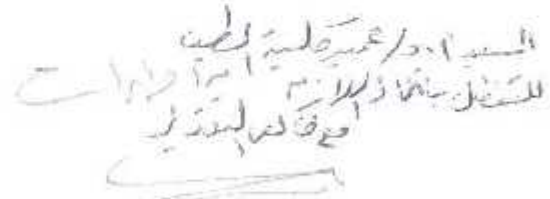 السيد أ.د/ عميد كلية الطب
للتفضل باتخاذ اللازم
مع خالص التقدير